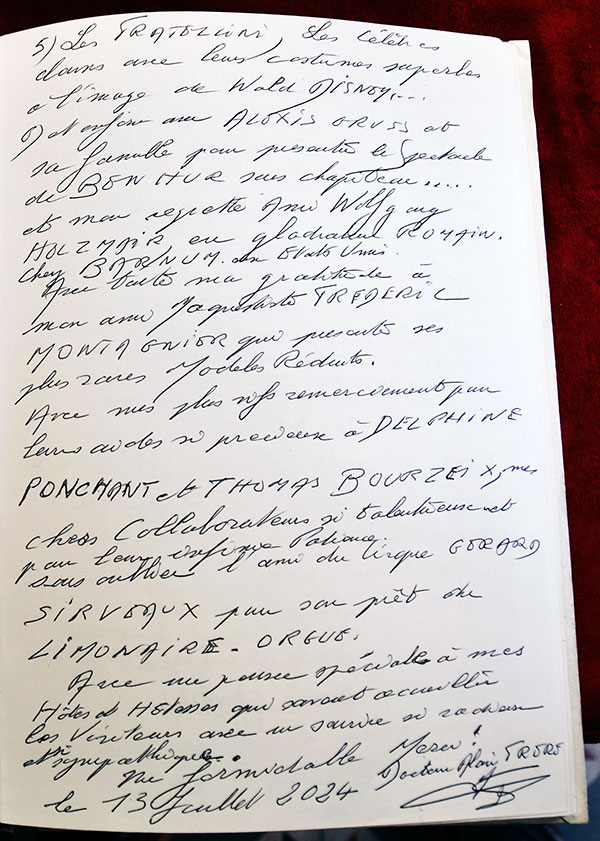 5) Les FRATELLINI, Les Célèbres
clowns avec leurs costumes superbes
à l'image de Wald DISNEY....
6) et enfin aux ALEXIS GRUSS et
sa famille pour présenter le Spectacle
de BEN HUR sous chapiteau.....
et mon regretté Ami Wolfgang
HOLZMAIR, en gladiateur ROMAIN.
chez BARNUM. aux Etats Unis.
Avec toute ma gratitude à
mon ami Maquettiste FREDERIC
MONTAGNIER qui présente ses
plus rares Modèles Réduits.
Avec mes plus vifs remerciements pour
leurs aides si précieuse à DELPHINE
PONCHANT et THOMAS BOURZEIX, mes
chers Collaborateurs si talentueux et
pour leur infinie Patience
sans oublier l'ami du Cirque GERARD
SIRVEAUX pour son prêt du
LIMONAIRE - ORGUE.
Avec une pensée spéciale à mes
Hôtes et Hôtesses qui savent accueillir
les Visiteurs avec un sourire si radieux
et si sympathique.
Une formidable Merci!
Docteur Alain FRERE
le 13 Juillet 2024